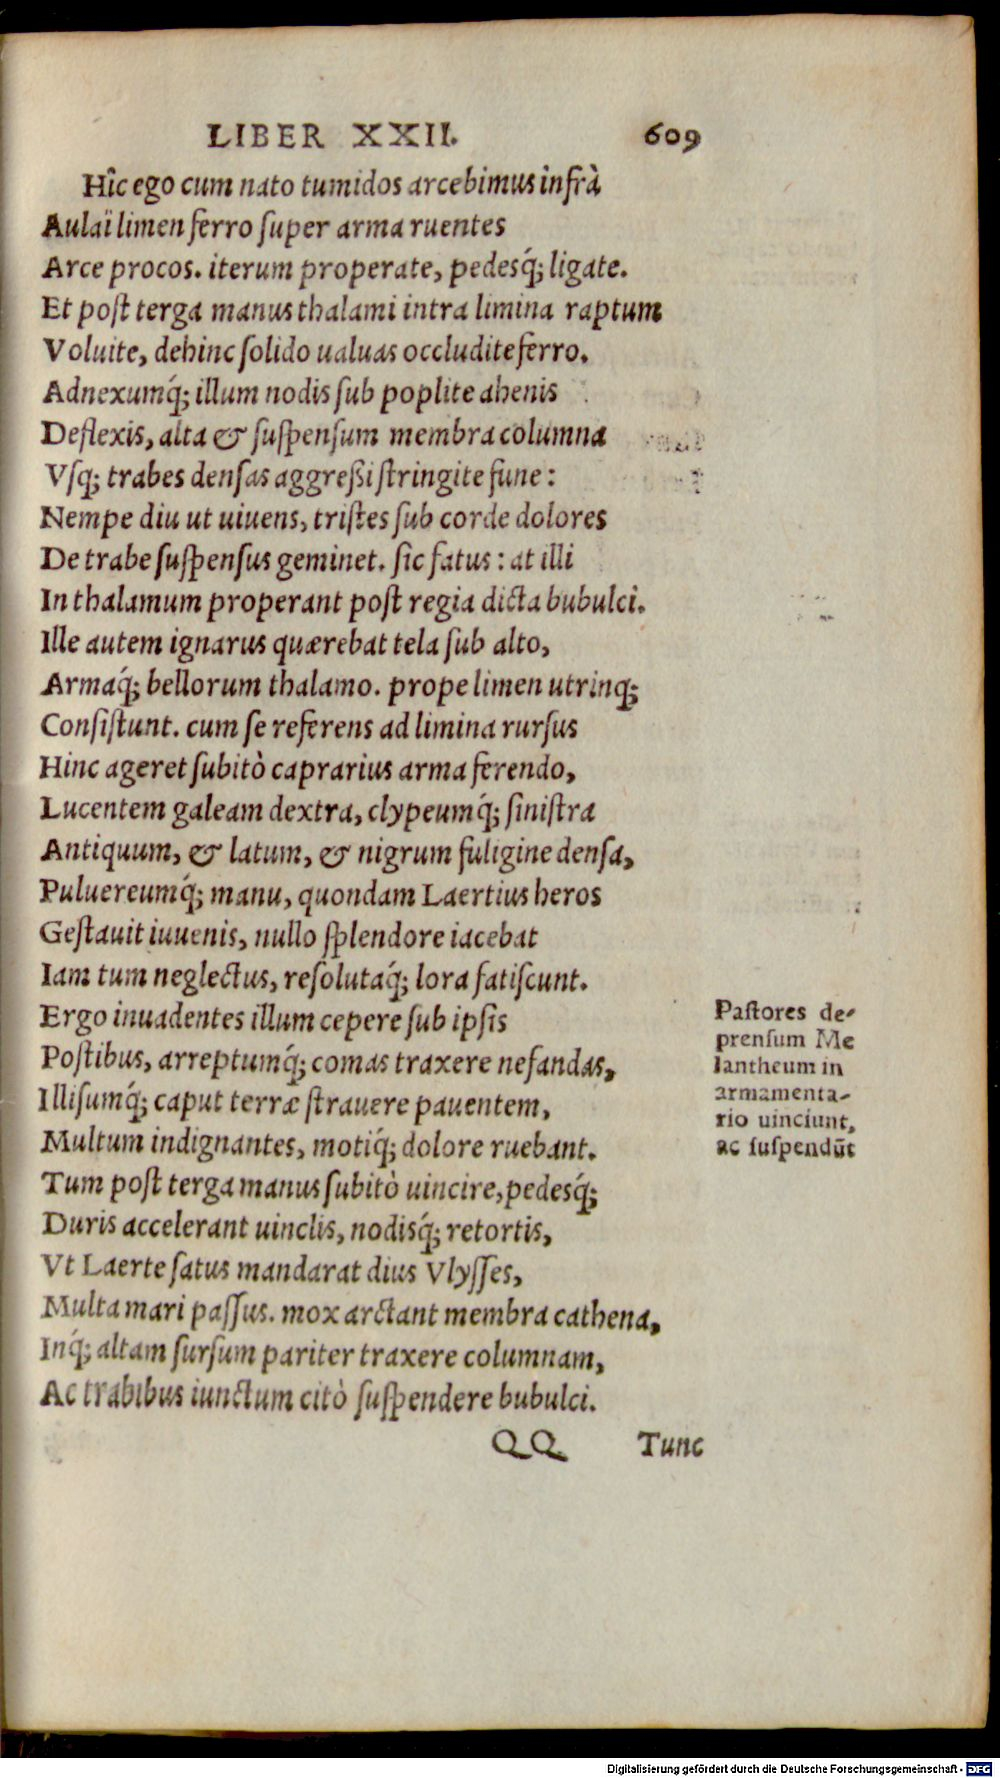 LIBER XXII. 609
Hîc ego cum nato tumidos arcebimus infrà
Aulaï limen ferro ſuper arma ruentes
Arce procos. iterum properate, pedesq́; ligate.
Et poſt terga manus thalami intra limina raptum
Voluite, dehinc ſolido ualuas occludite ferro.
Adnexumq́; illum nodis ſub poplite ahenis
Deflexis, alta & ſuſpenſum membra columna
Vſq; trabes denſas aggreßi ſtringite fune:
Nempe diu ut uiuens, triſtes ſub corde dolores
De trabe ſuſpenſus geminet. ſic fatus: at illi
In thalamum properant poſt regia dicta bubulci.
Ille autem ignarus quærebat tela ſub alto,
Armaq́; bellorum thalamo. prope limen utrinq;
Conſiſtunt. cum ſe referens ad limina rurſus
Hinc ageret ſubitò caprarius arma ferendo,
Lucentem galeam dextra, clypeumq́; ſiniſtra
Antiquum, & latum, & nigrum fuligine denſa,
Puluereumq́; manu, quondam Laertius heros
Geſtauit iuuenis, nullo ſplendore iacebat
Iam tum neglectus, reſolutaq́; lora fatiſcunt.
Ergo inuadentes illum cepere ſub ipſis
Poſtibus, arreptumq́; comas traxere nefandas,
Illiſumq́; caput terræ ſtrauere pauentem,
Multum indignantes, motiq́; dolore ruebant.
Tum poſt terga manus ſubitò uincire, pedesq́;
Duris accelerant uinclis, nodisq́; retortis,
Vt Laerte ſatus mandarat dius Vlyſſes,
Multa mari paſſus. mox arctant membra cathena,
Inq́; altam ſurſum pariter traxere columnam,
Ac trabibus iunctum citò ſuſpendere bubulci.
Paſtores de-
prenſum Me
lantheum in
armamenta-
rio uinciunt,
ac ſuſpendūt
QQ Tunc
Digitalisierung gefördert durch die Deutsche Forschungsgemeinschaft - DFG